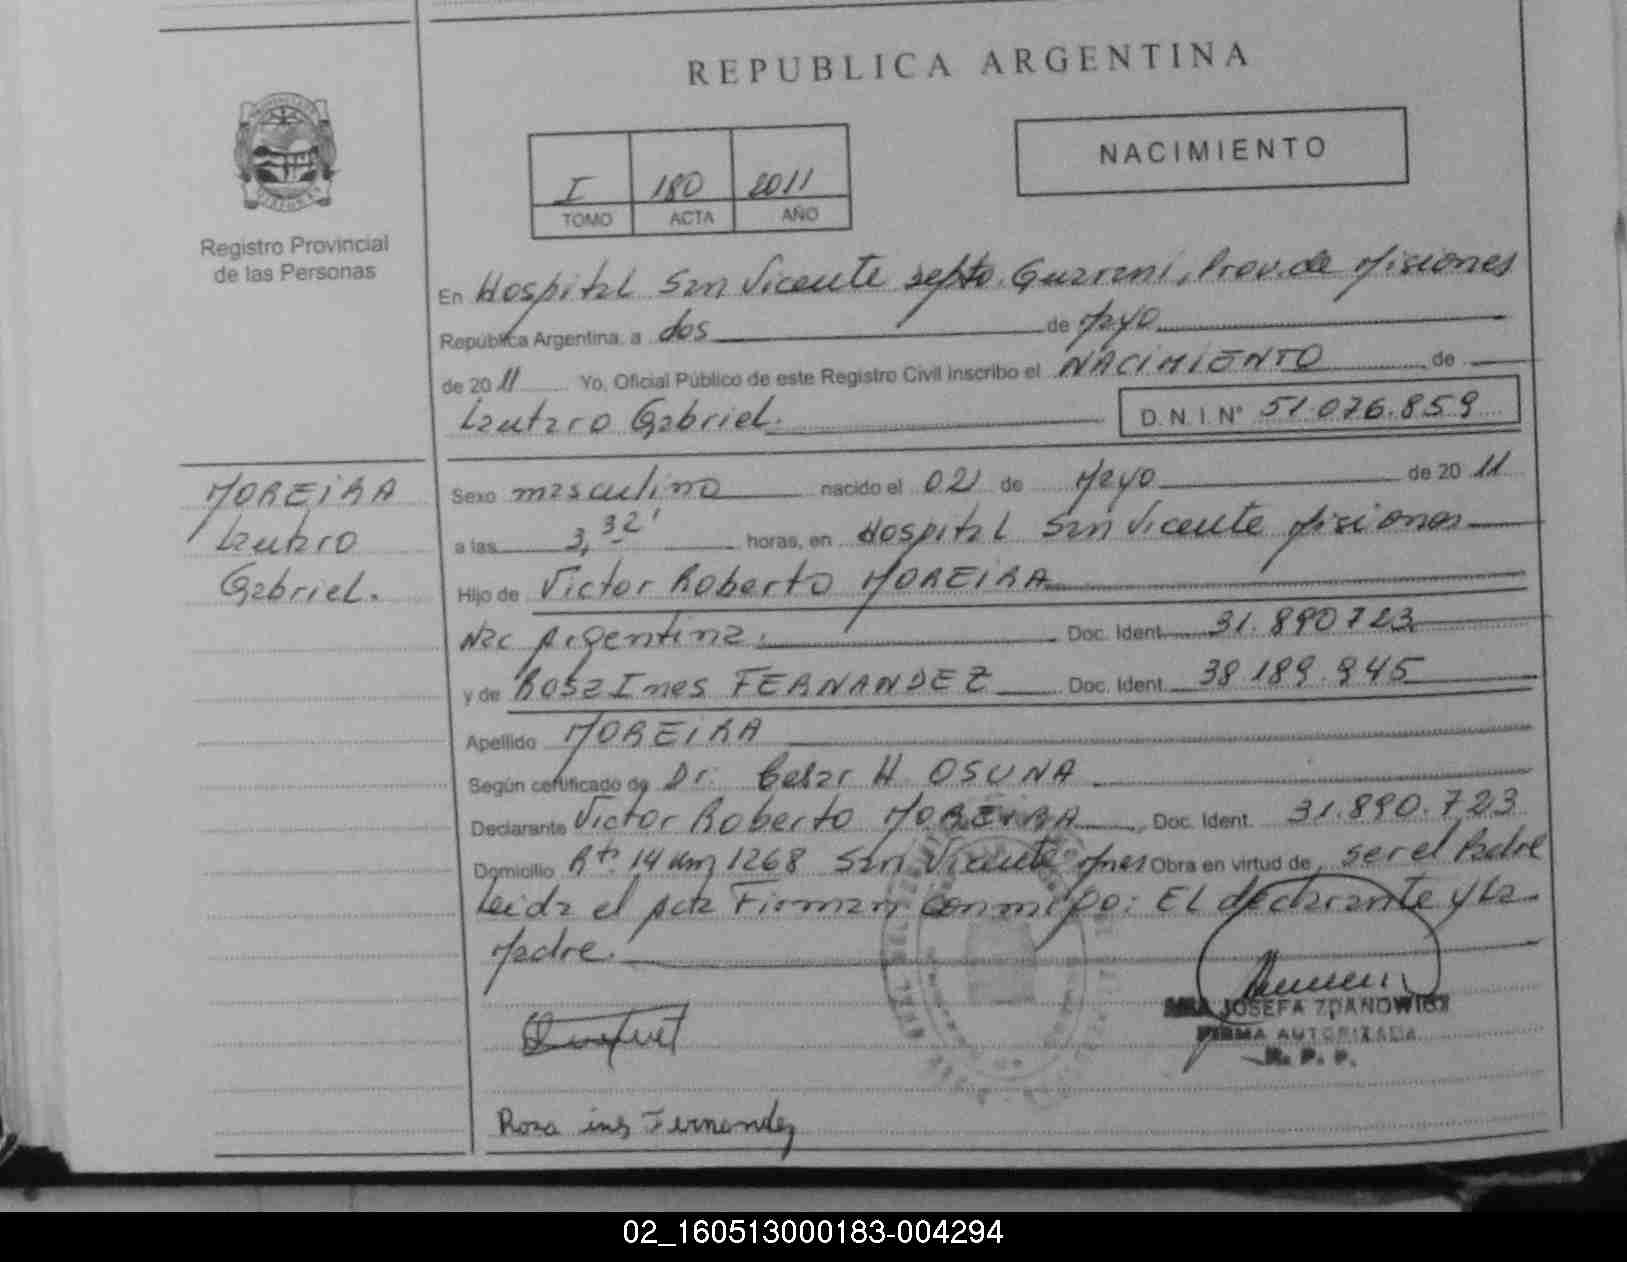 REPUBLICA ARGENTINA
NACIMIENTO
I 180 2011
TOMO ACTA AÑO
Registro Provincial
de las Personas
En Hospital San Vicente Depto. Guarani, Prov. de Misiones
República Argentina, a dos de Mayo
de 2011 Yo, Oficial Público de este Registro Civil inscribo el NACIMIENTO de
Lautaro Gabriel. D.N.I. N° 51.076.859
MOREIRA
Lautaro
Gabriel.
Sexo masculino nacido el 02 de Mayo de 2011
a las 3,32' horas, en Hospital San Vicente Misiones
Hijo de Victor Roberto MOREIRA
Nac Argentina. Doc. Ident. 31.890.723
y de Rosa Ines FERNANDEZ Doc. Ident. 38.189.945
Apellido MOREIRA
Según certificado de Dr. Cesar H. OSUNA
Declarante Victor Roberto MOREIRA, Doc. Ident. 31.890.723
Domicilio Rta 14 km 1268 San Vicente Mnes Obra en virtud de ser el Padre
Leida el Acta Firman conmigo: El declarante y La
Madre.
JOSEFA ZDANOWICZ
FIRMA AUTORIZADA
R. P. P.
Rosa ins Fernandez
02_160513000183-004294